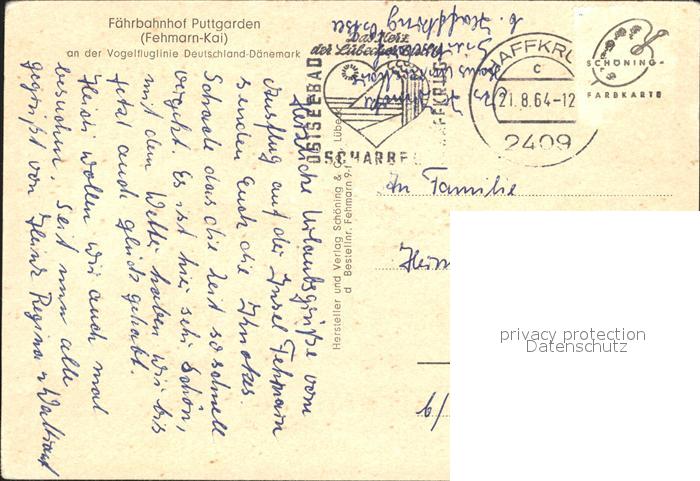 Fährbahnhof Puttgarden
(Fehmarn-Kai)
an der Vogelfluglinie Deutschland-Dänemark
Herzliche Urlaubsgrüße vom
Ausflug auf der Insel Fehmarn
senden Euch die
Schade dass die Zeit so schnell
vergeht. Es ist hier sehr schön,
mit dem Wetter haben wir bis
jetzt auch Glück gehabt.
Heidi wollen wir auch mal
besuchen. Seit nun alle
gegrüßt von Heinz Regina u Waltraut
Hersteller und Verlag Schöning & Co., Lübeck
d Bestellnr. Fehmarn 9 f
Das Herz
der Lübecker
OSTSEEBAD
SCHARBEU
HAFFKRU
c
21.8.64-12
2409
SCHÖNING-
FARBKARTE
An Familie
privacy protection
Datenschutz